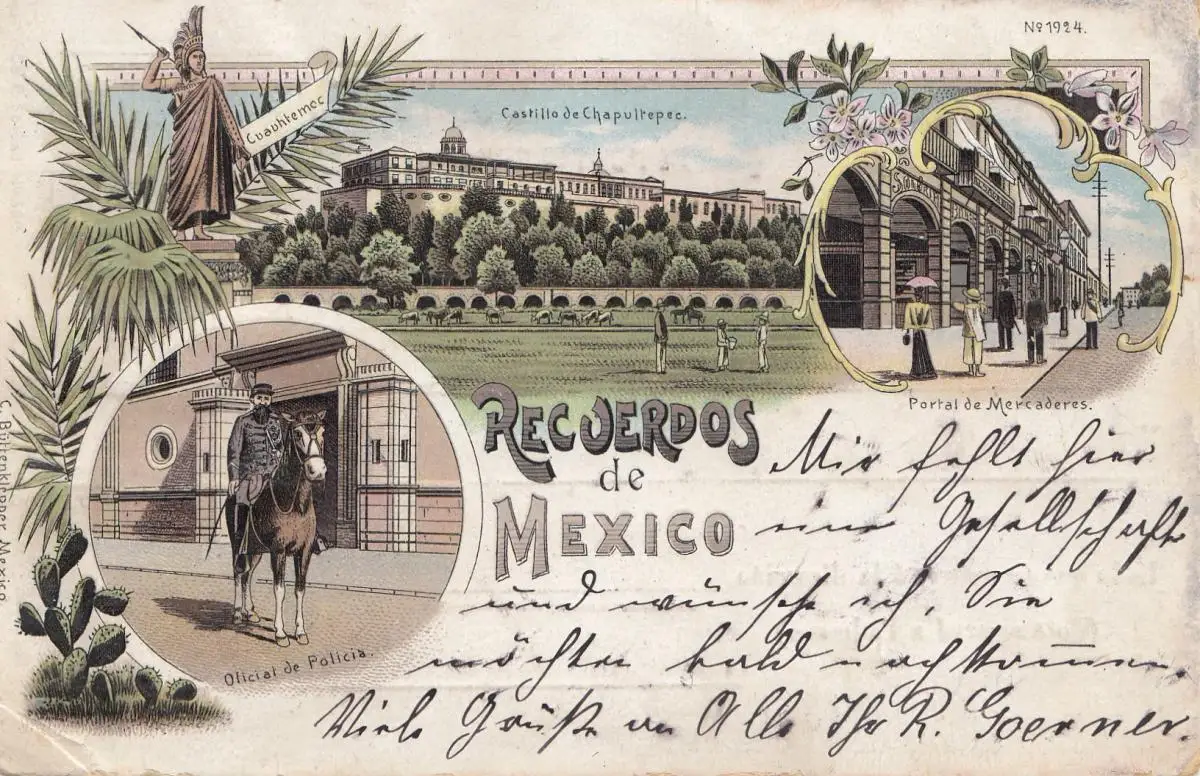 No 1924.
Cuauhtemec
Castillo de Chapultepec.
Portal de Mercaderes.
RECUERDOS
de
MEXICO
Oficial de Policia.
Mir fehlt hier
eine Gesellschaft
und wünsche ich, Sie
möchten bald nachkommen.
Viele Grüße an Alle Ihr R. Goerner.
Mexico